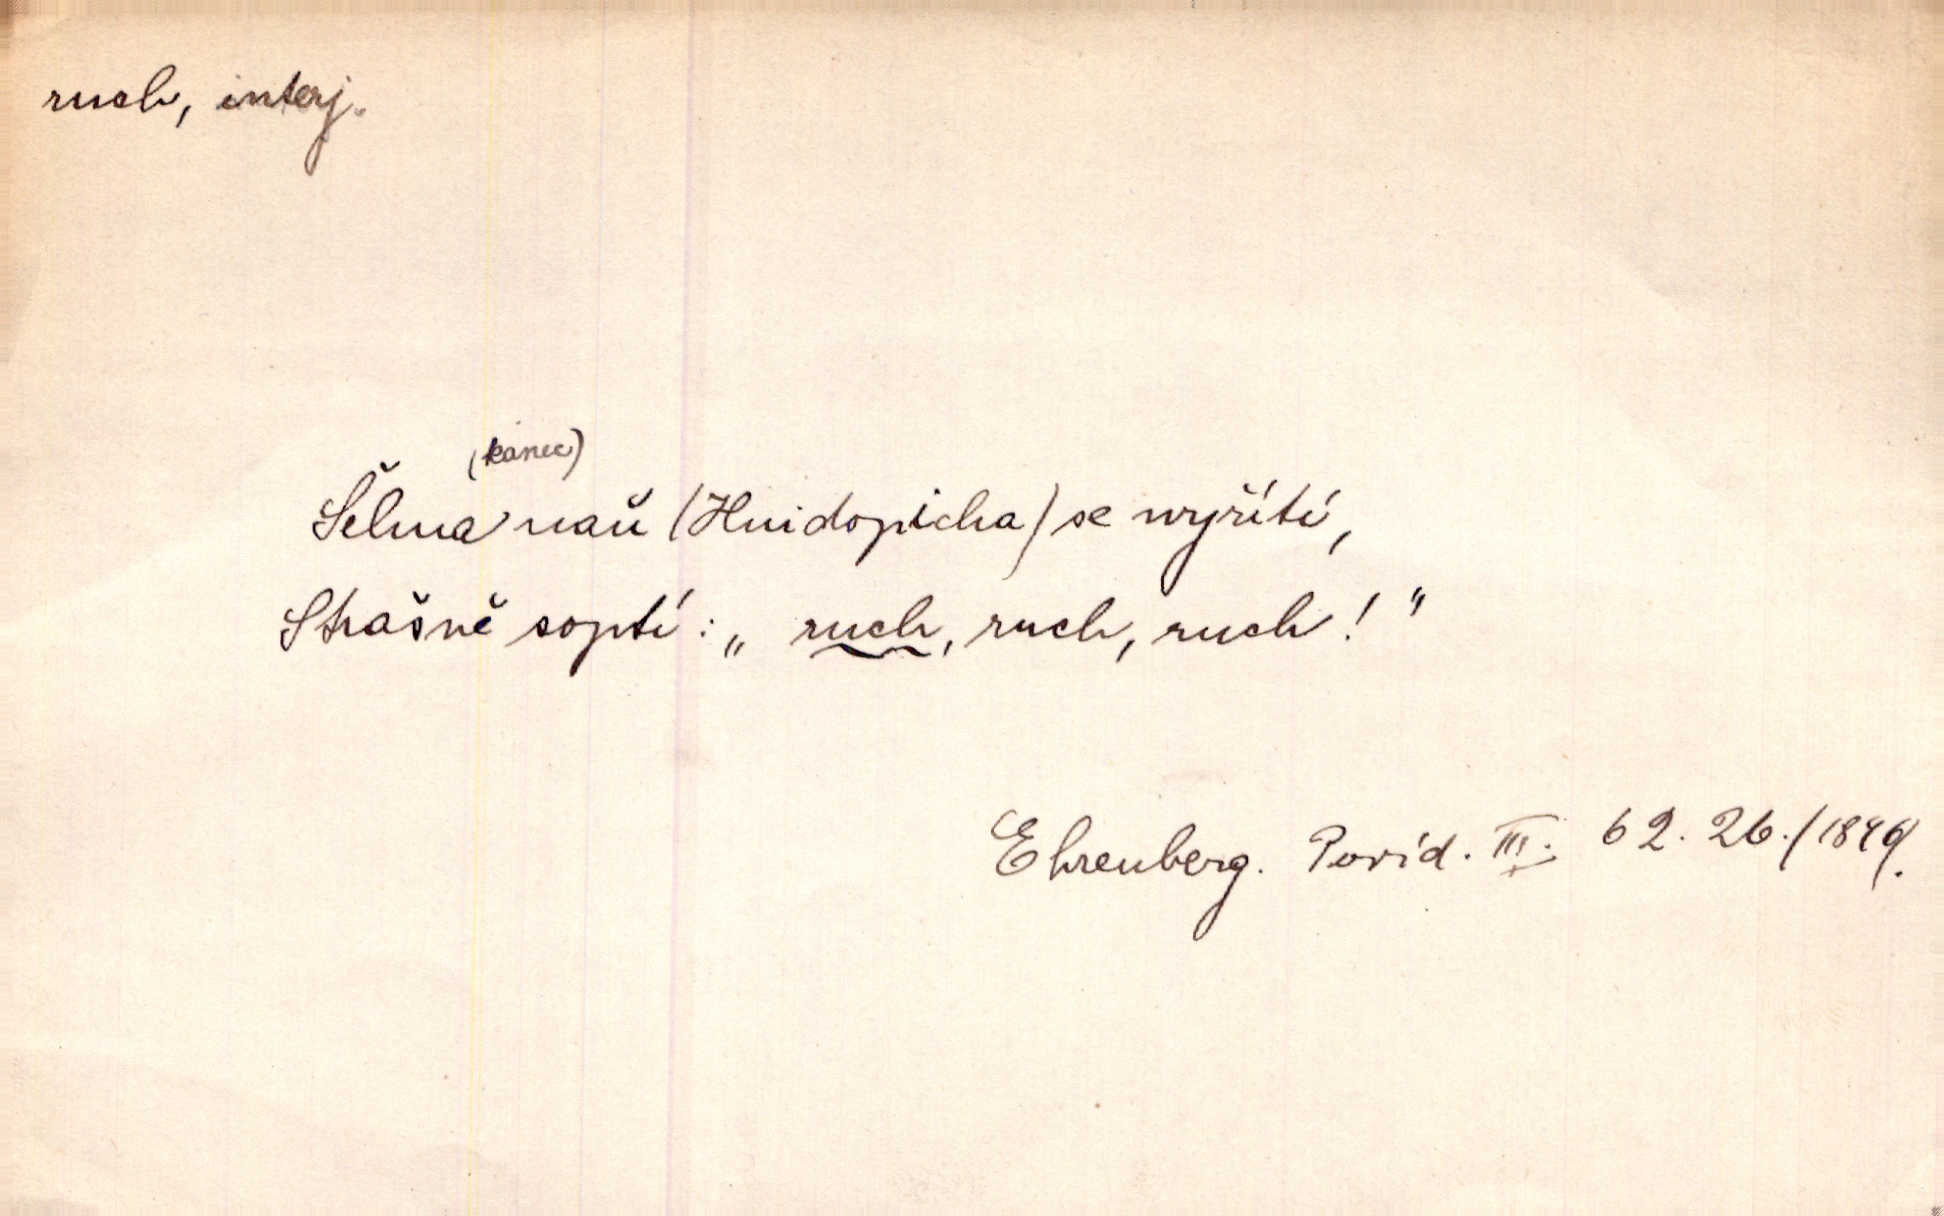 ruch, interj.
(kanec)
Šelma naň (Hnidopicha) se wyřítí,
Strašně soptí: „ ruch, ruch, ruch! "
Ehrenberg. Povíd. III. 62. 26./